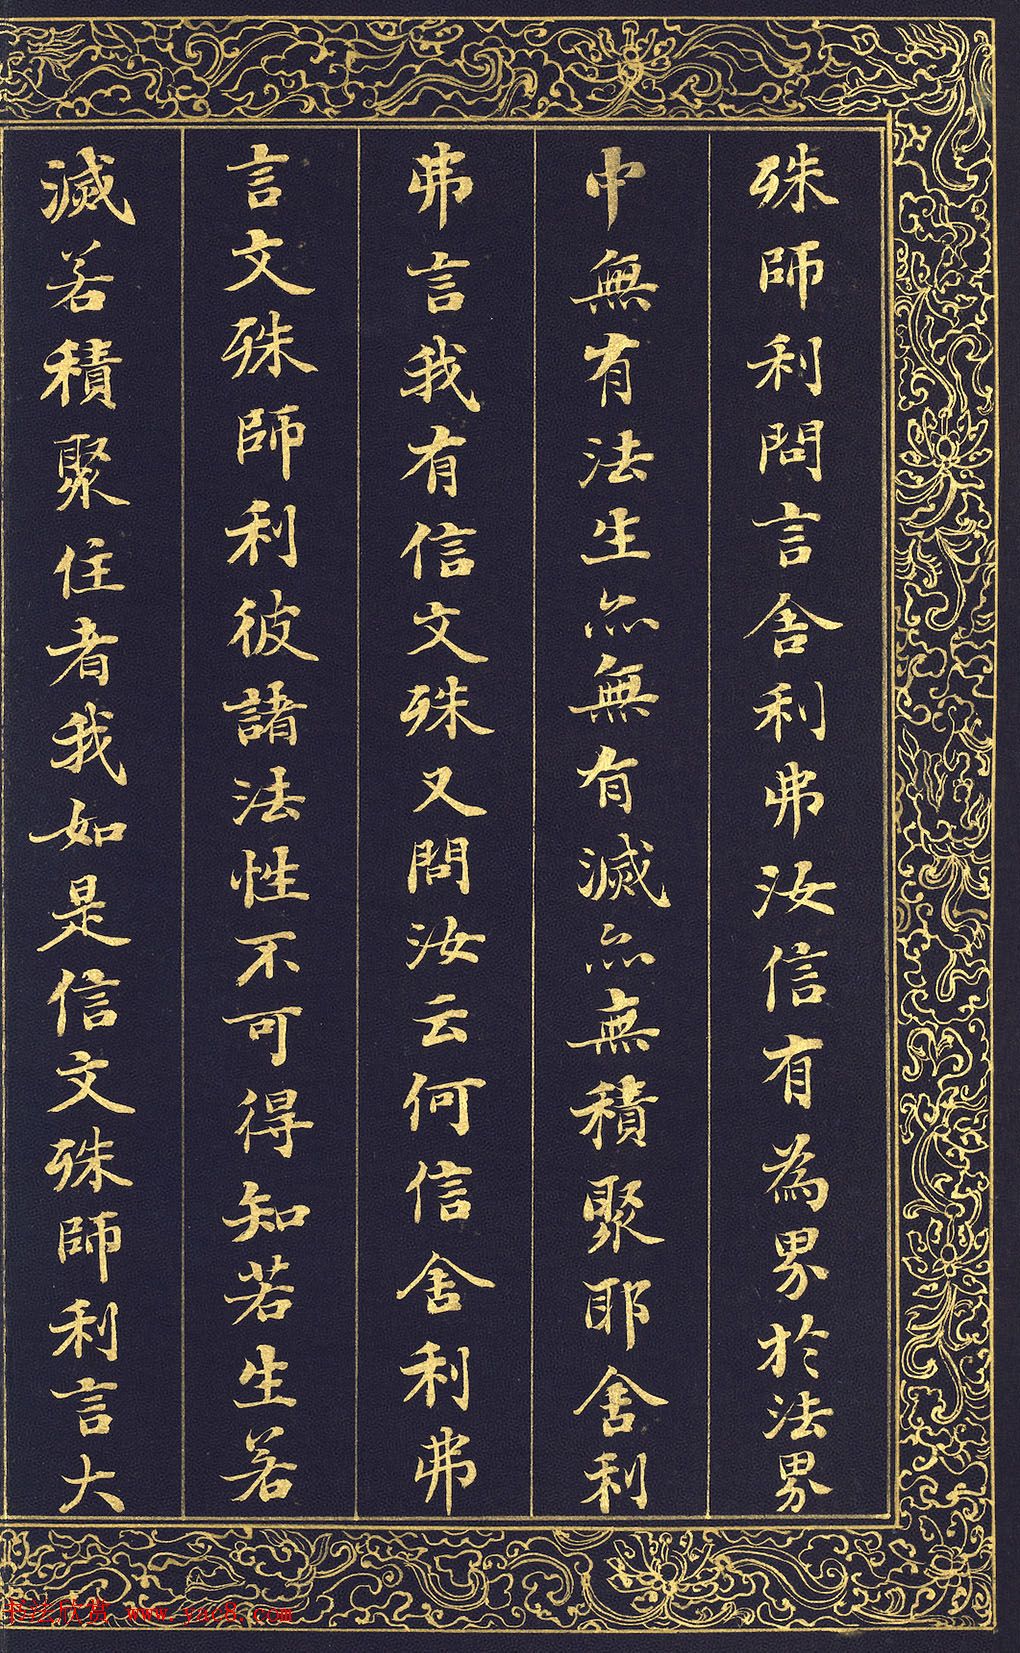 殊師利問言舍利弗汝信有為界於法界
中無有法生亦無有滅亦無積聚耶舍利
弗言我有信文殊又問汝云何信舍利弗
言文殊師利彼諸法性不可得知若生若
滅若積聚住者我如是信文殊師利言大
书法欣赏 www.yac8.com